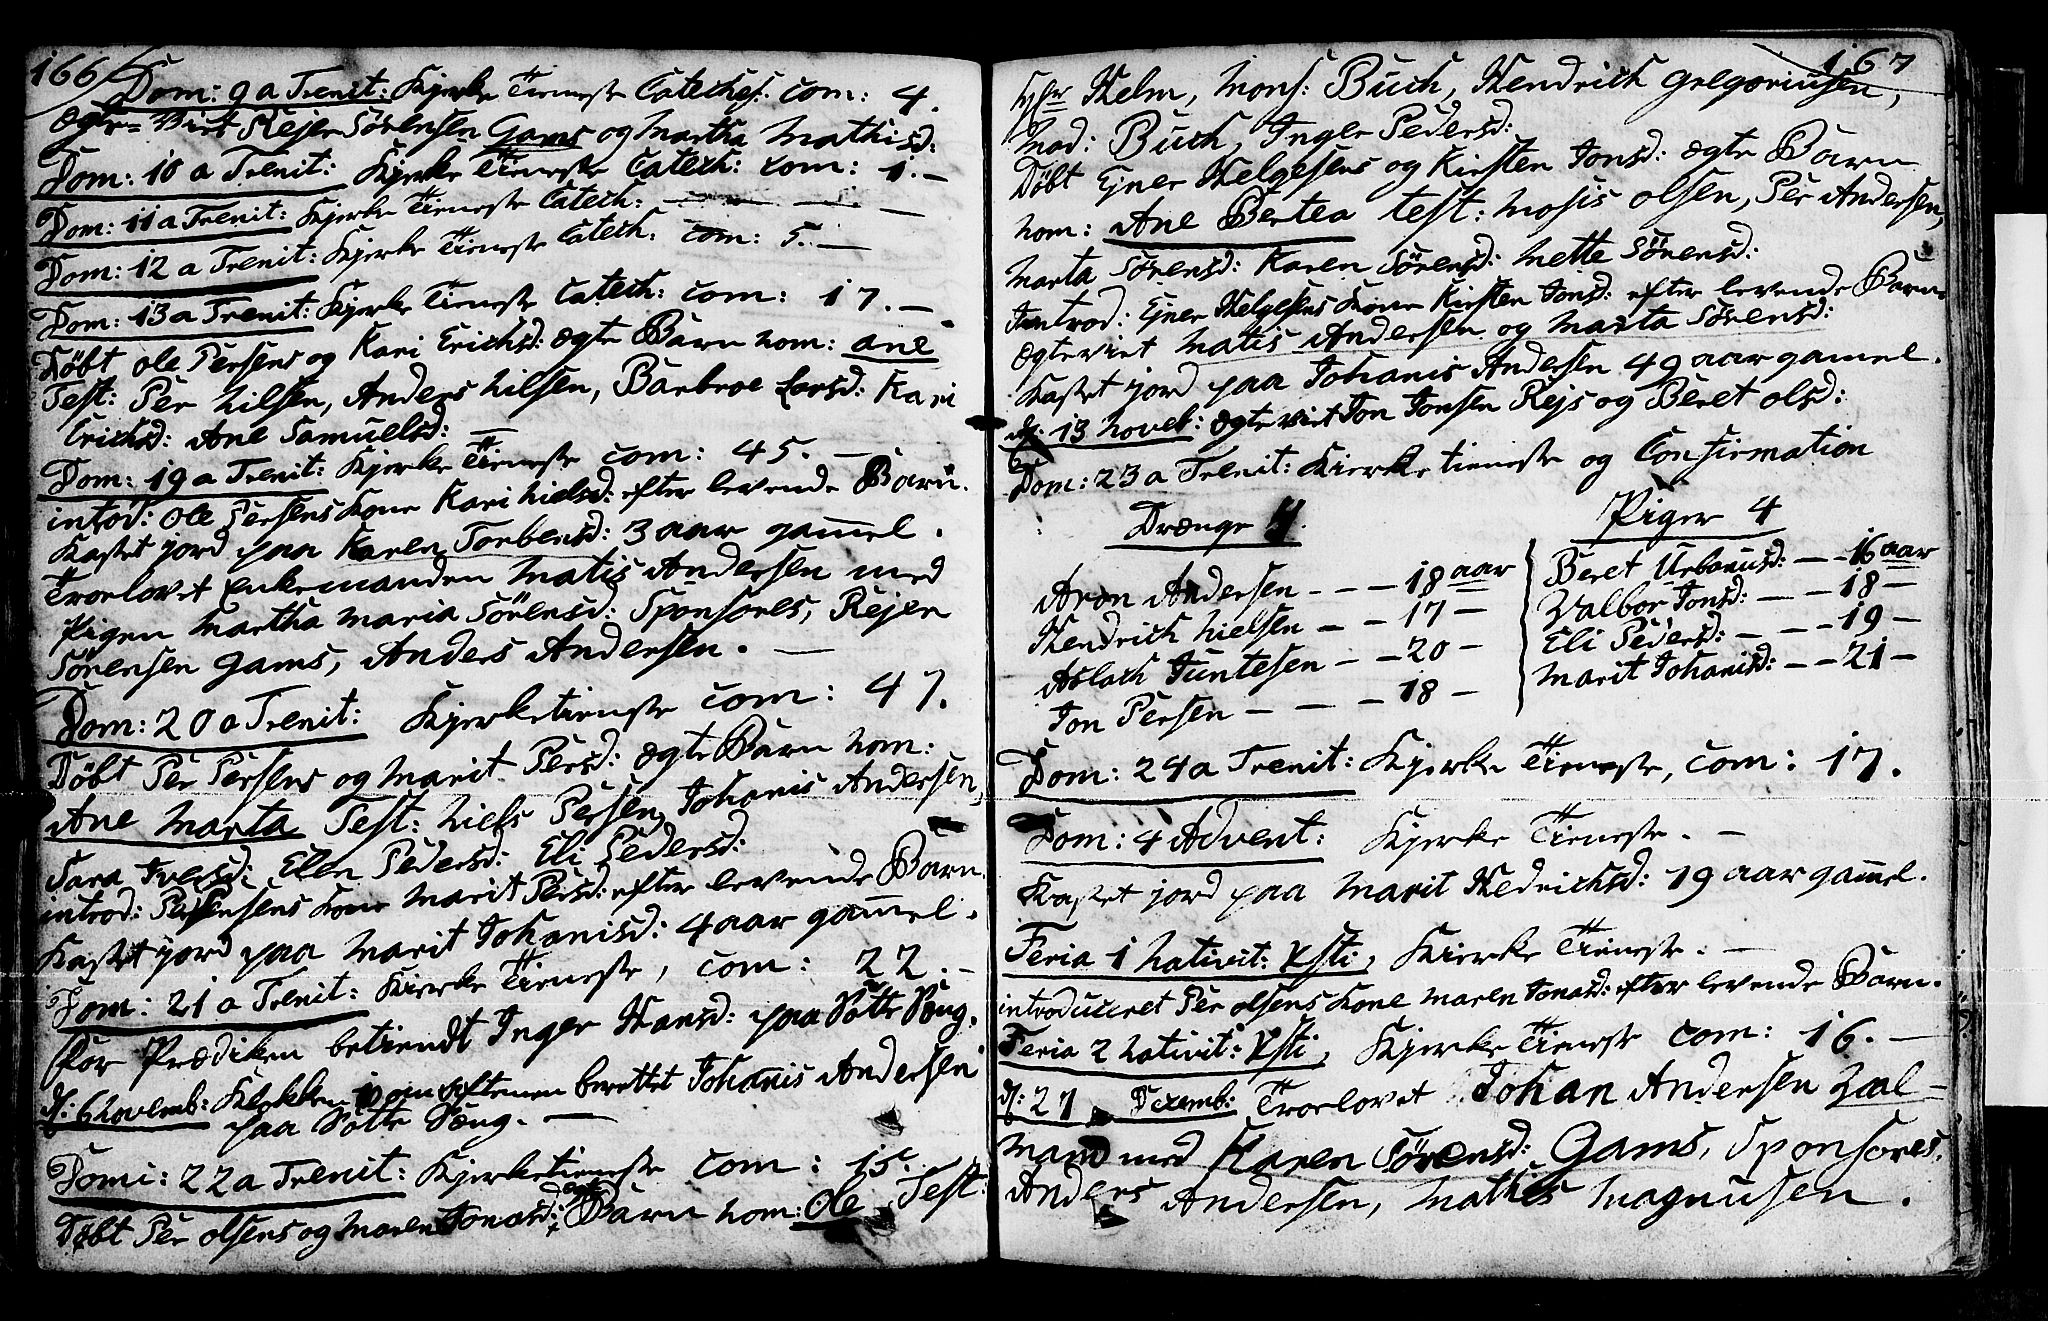 166
Dom: 9 a Trenit: Kjerke Tieneste Catechs: com: 4.
Ægte-Viet Rejer Sörensen Gams og Martha Mathisd:
Dom: 10 a Trenit: Kjerke Tieneste Catech: com: 1. —
Dom: 11 a Trenit: Kjerke Tieneste Catech: — — — —
Dom: 12 a Trenit: Kjerke Tieneste Catech: com: 5. —
Dom: 13 a Trenit: Kjerke Tieneste Catech: com: 17. —
Döbt ole Persens og Kari Erichsd: ægte Barn nom: ane
Test: Per Nilsen, Anders Nilsen, Barbroe Larsd: Kari
Erichsd: Ane Samuelsd: —
Dom: 19 a Trenit: Kjerke Tieneste com: 45. —
intod: ole Persens Kone Kari Nielsd: efter levende Barn.
Kastet jord paa Karen Torbensd: 3 aar gam̄el.
Troelovet Enkemanden Matis Andersen med
Pigen Martha Maria Sörensd: Sponsores, Rejer
Sörensen Gams, Anders Andersen. —
Dom: 20 a Trenit: Kjerketieneste com: 47.
Döbt Per Persens og Marit Persd: ægte Barn nom:
Ane Marta Test: Niels Persen, Johanis Andersen,
Sara Iversd: Elen Pedersd: Eli Pedersd:
introd: Per Persens Kone Marit Persd: efter levende Barn.
Kastet jord paa Marit Johanisd: 4 aar gam̄el.
Dom: 21 a Trenit: Kierke Tieneste, com: 22. —
för Prædiken betiendt Inger Hansd: paa Sotte Seng.
d: 6 Novemb: Klokken 10 om aftenen berettet Johanis Andersen
paa Sotte Seng. —
Domi: 22 a Trenit: Kjerketieneste com: 15.
Döbt Per olsens og Maren Jonasd: ægte Barn nom: ole Test:
167
Hr Helm, Mons: Buch, Hendrich Gregoriusen,
Mad: Buch, Inger Pedersd:
Döbt Ejner Helgesens og Kirsten Jonsd: ægte Barn
nom: Ane Bertea test: Mosis olsen, Per Andersen,
Marta Sörensd: Karen Sörensd: Mette Sörensd:
Introd: Ejner Helgesens Kone Kirsten Jonsd: efter levende Barn
Ægteviet Matis Andersen og Marta Sörensd:
Kastet jord paa Johanis Andersen 49 aar gamel.
d: 13 Noveb: ægteviet Jon Jonsen Rejs og Beret olsd:
Dom: 23 a Trenit: Kierketieneste og Confirmation
Drænge 4. Piger 4
Aron Andersen - - - 18 aar Beret Urbanusd: — 16 aar
Hendrich Nielsen — — 17 — Valbor Jonsd: — — 18 —
Aslach Juntesen — — 20 — Eli Pedersd: — — — 19 —
Jon Persen — — — 18 — Marit Johanisd: — — 21 —
Dom: 24 a Trenit: Kjerke Tieneste, com: 17.
Dom: 4 Advent: Kjerke Tieneste. —
Kastet jord paa Marit Hedrichsd: 19 aar gam̄el.
Feria 1 Nativit: Xsti, Kierke Tieneste. —
introduceret Per olsens Kone Maren Jonasd: efter levende Barn.
Feria 2 Nativit: Xsti, Kjerke Tieneste com: 16. —
d: 27 Decemb: Troelovet Johan Andersen Qval-
mand med Karen Sörensd: Gams, Sponsores,
Anders Andersen, Mathis Magnusen.